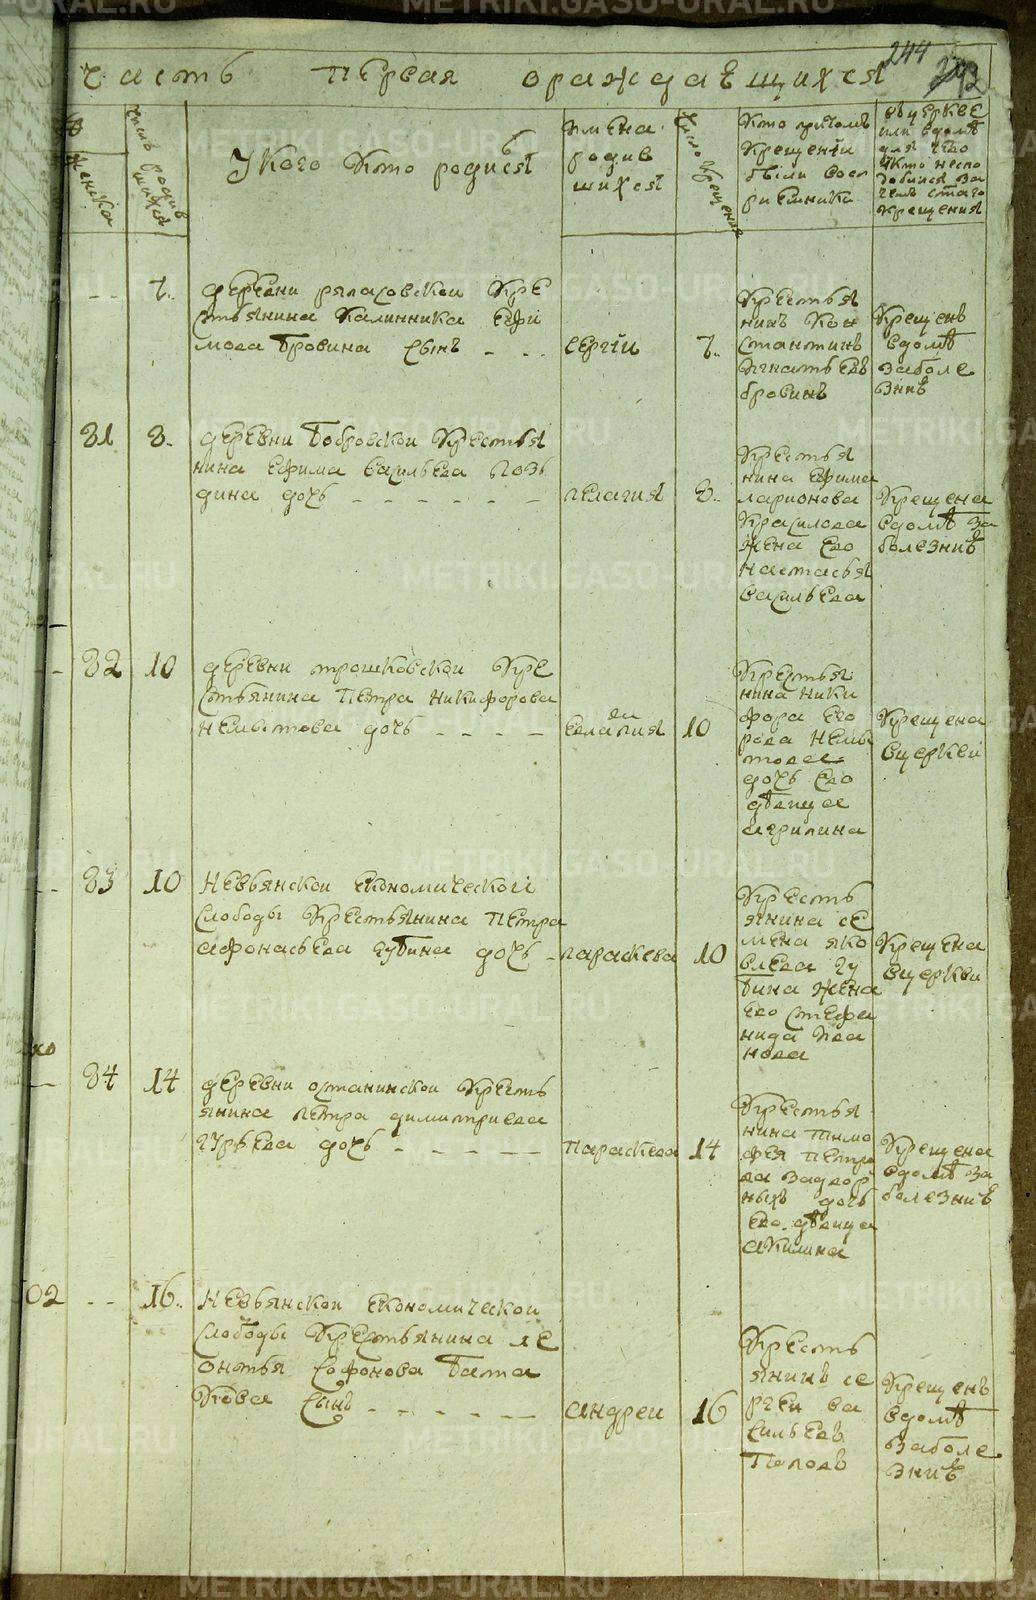 244
часть первая ораждаѣщихся
женска
число родив
шихся
У Кого Кто родился
имена
родив
шихся
число крещения
Кто притомъ
крещенїи
были восп
риемники
вцеркве
или вдомѣ
для чего
крещения
7.
деревни ряпасовской кре
стьянина Калинника Ефи
мова Бровина сынъ
сергїи
7.
крестья
нинъ Кон
стантинъ
игнатьевъ
бровинъ
крещенъ
вдомѣ
заболе
знив
31
8.
деревни Бобровской крестья
нина ефима васильева позь
дина дочь
пелагия
8.
крестья
нина ефима
ларионова
красилова
жена его
настасья
васильева
крещена
вдомѣ за
болезнив
32
10
деревни трошковской кре
стьянина петра никифорова
немытова дочь
евлапия
10
крестья
нина ники
фора его
рова немы
това
дочь его
дѣвица
агрипина
крещена
вцеркви
33
10
невьянской економической
слободы крестьянина петра
афонасьева губина дочь
параскева
10
кресть
янина се
мена яко
влева гу
бина жена
его стефа
нида ива
нова
крещена
вцеркви
34
14
деревни останинской кресть
янина петра димитриева
гурьева дочь
параскева
14
крестья
нина тимо
фея петро
ва задвор
ныхъ дочь
его дѣвица
акилина
крещена
вдомѣ за
болезнив
02
16.
невьянской економической
слободы крестьянина ле
онтья софонова бата
кова сынъ
андреи
16
кресть
янинъ се
ргеи ва
сильевъ
Поповъ
крещенъ
вдомѣ
заболе
знив
METRIKI.GASO-URAL.RU